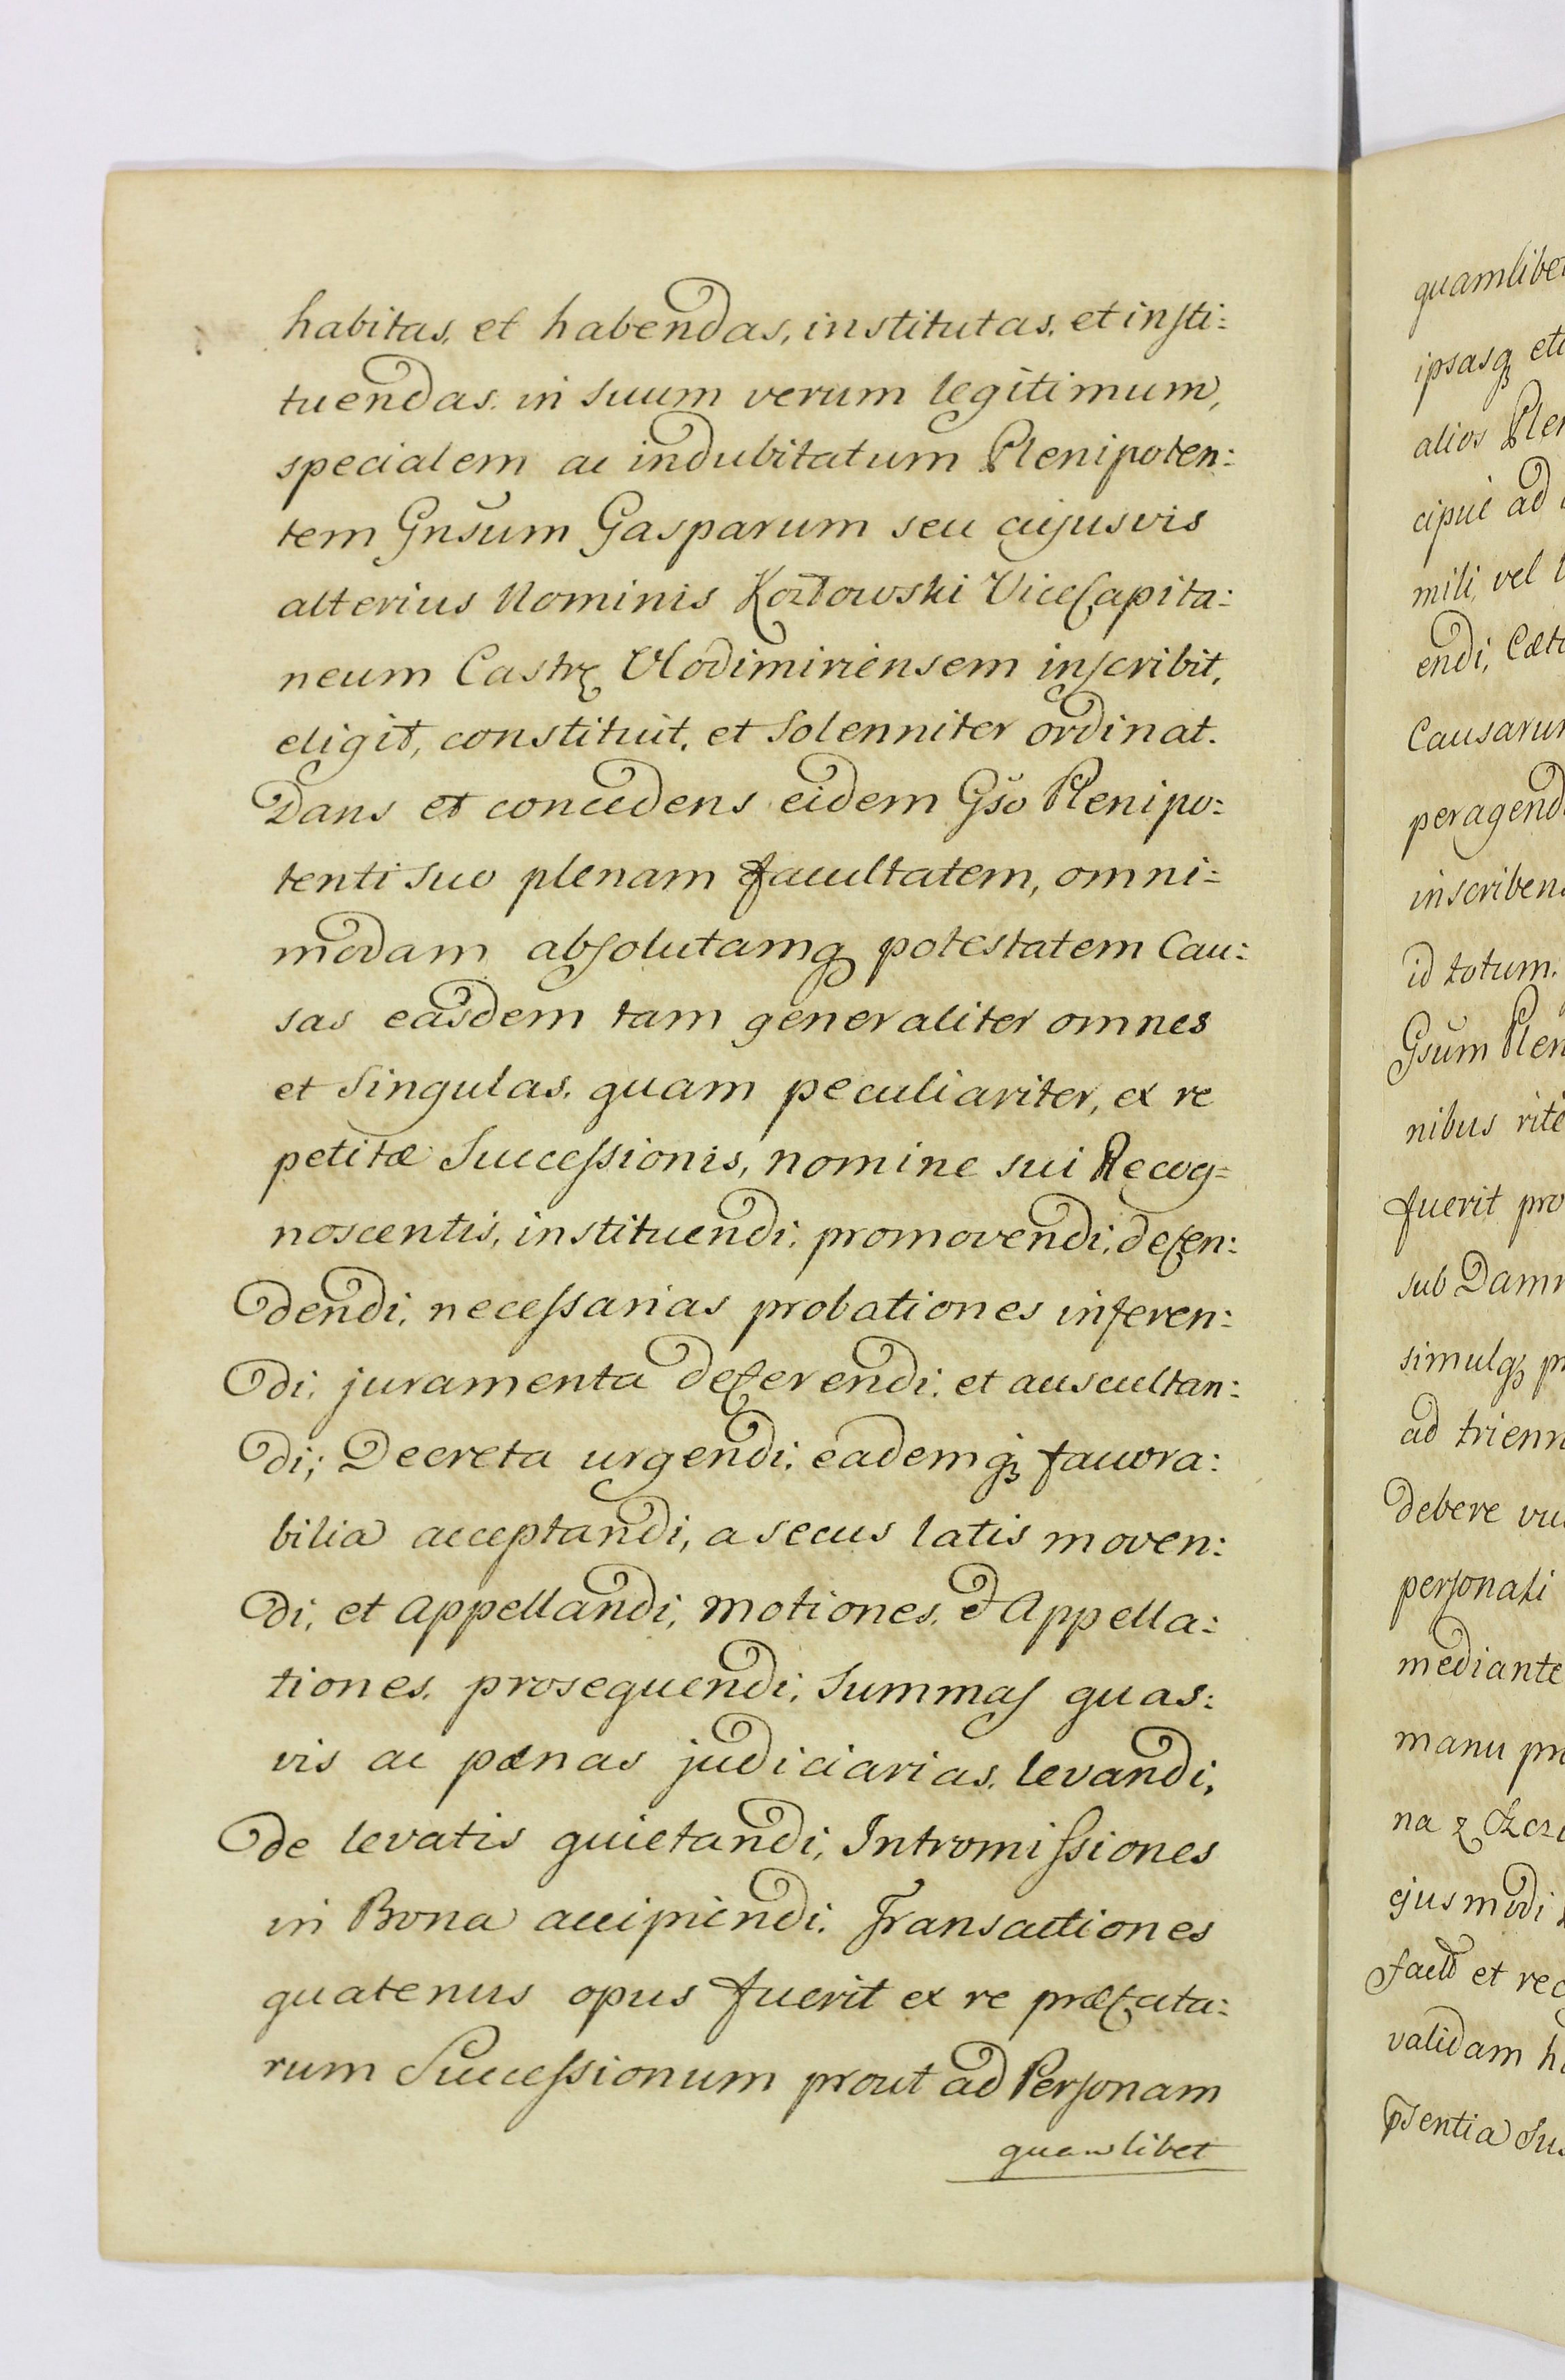 habitas, et habendas, institutas, et insti:
tuendas in suum verum legitimum,
specialem ac indubitatum Plenipoten:
tem Gnsum Gasparum seu cujusvis
alterius Nominis Kozłowski ViceCapita:
neum Castr. Vlodimiriensem inscribit,
eligit, constituit, et Solenniter ordinat.
Dans et concedens eidem Gso Plenipo:
tenti suo plenam facultatem, omni=
modam absolutamq potestatem Cau:
sas easdem tam generaliter omnes
et Singulas, quam peculiariter, ex re
petitæ Successionis, nomine sui Recog=
noscentis, instituendi, promovendi, defen:
dendi, necessarias probationes inferen:
di, juramenta deferendi, et auscultan:
di; Decreta urgendi, eademq favora:
bilia acceptandi, a secus latis moven:
di, et Appellandi, motiones, et Appella:
tiones, prosequendi, Summas quas:
vis ac pænas judiciarias, levandi,
de levatis quietandi, Intromissiones
in Bona accipiendi, Transactiones
quatenus opus fuerit ex re præfata:
rum Successionum prout ad Personam
quamlibet
quamlibe
ipsasq
alios
cipue ad
mili, vel
endi,
Causaru
peragend
inscriben
id totum.
Gsum Plen
nibus rite
fuerit pro
sub Dam
simulq
ad trienn
debere
personali
mediante
manu
na z
ejusmodi
facto et rec
validam